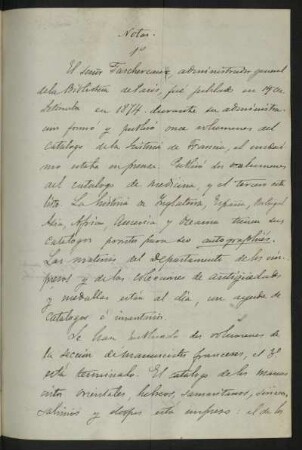 Notas.
1º
El señor Taschereau, administrador general
de la Biblioteca de París, fue jubilado en 19 de
Setiembre en 1874. durante su administra-
formó y publicó once volúmenes del
Catálogo de la historia de Francia, el
estaba en prensa. Publicó dos volúmenes
del catálogo de medicina, y el tercero está
listo. La historia de Inglaterra, España, Portugal
Asia, África, America y Oceanía tienen sus
catálogos prontos para ser autographiés.
Las materias del Departamento de los im-
presos y de las colecciones de antigüedades
y medallas están al día, con ayuda de
catálogos é inventarios.
Se han publicado dos volúmenes
de la sección de manuscritos franceses, el 3º
está terminado. El catálogo de los manus-
critos orientales, hebreos, samaritanos, siriacos,
y coptos esta impreso: el de los